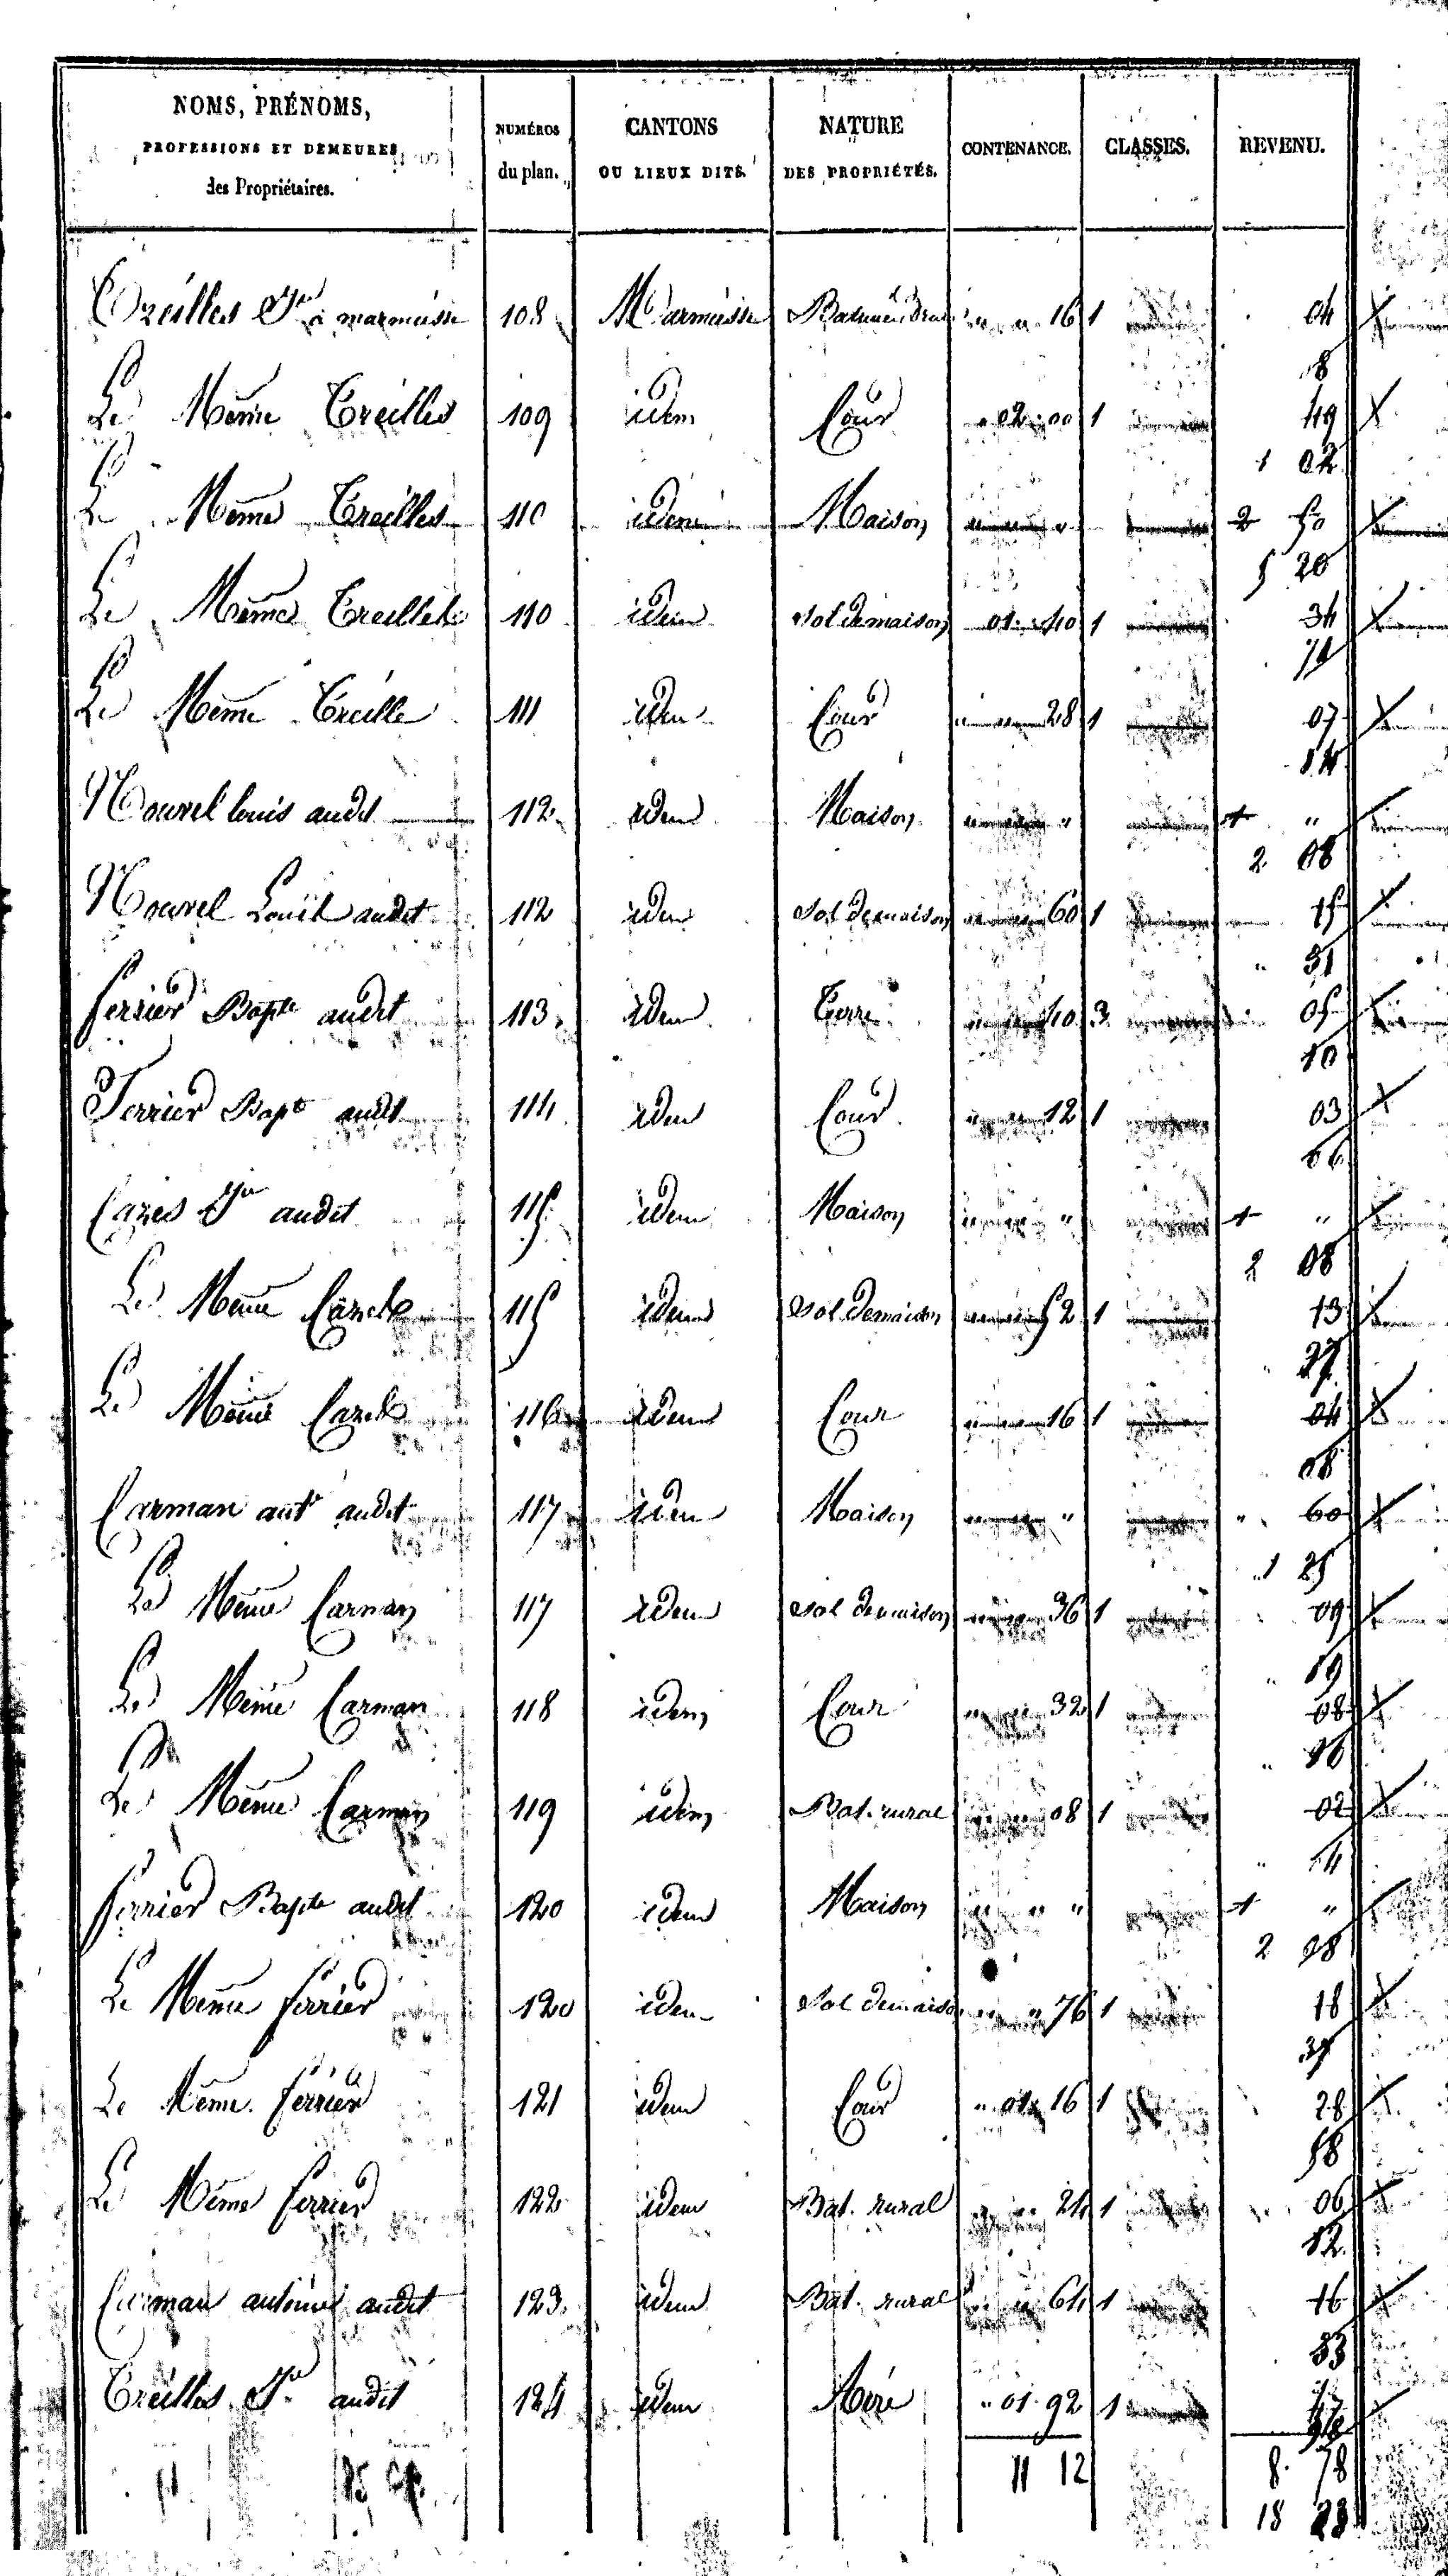 NOMS, PRÉNOMS, PROFESSIONS ET DEMEURES des Propriétaires. NUMÉROS du plan. CANTONS OU LIEUX DITS. NATURE DES PROPRIÉTÉS. CONTENANCE. CLASSES. REVENU.
Treilles Jn à marmiesse 108 Marmiesse 16 1 04
8
Le Même Treilles 109 idem Cour 02 00 1 49
1 02
Le Même Treilles 110 idem Maison " 2 50
5 20
Le Même Treilles 110 idem sol de maison 01 40 1 34
71
Le Même Treille 111 idem Cour 28 1 07
14
Nouvel louis audit 112 idem Maison " 1 "
2 08
Nouvel Louis audit 112 idem sol de maison 60 1 15
" 31
ferrier Bapte audit 113 idem Terre 40 3 05
10
Ferrier Bapte audit 114 idem Cour 12 1 03
06
Cazes Jn audit 115 idem Maison " 1 "
2 08
Le Même Cazes 115 idem sol de maison 52 1 13
27
Le Même Cazes 116 idem Cour 16 1 04
08
Carman ant audit 117 idem Maison " " 60
1 25
Le Même Carman 117 idem sol de maison 36 1 09
" 19
Le Même Carman 118 idem Cour 32 1 08
" 16
Le Même Carman 119 idem Bat. rural 08 1 02
" 4
ferrier Bapte audit 120 idem Maison " " " 1 "
2 08
Le Même ferrier 120 idem sol de maison " 76 1 18
39
Le Même ferrier 121 idem Cour " 01 16 1 28
58
Le Même ferrier 122 idem Bat. rural 24 1 06
12
Carman antoine audit 123 idem Bat. rural 64 1 16
33
Treilles Jn audit 124 idem Aire " 01 92 1 47
11 12 8 78
18 23